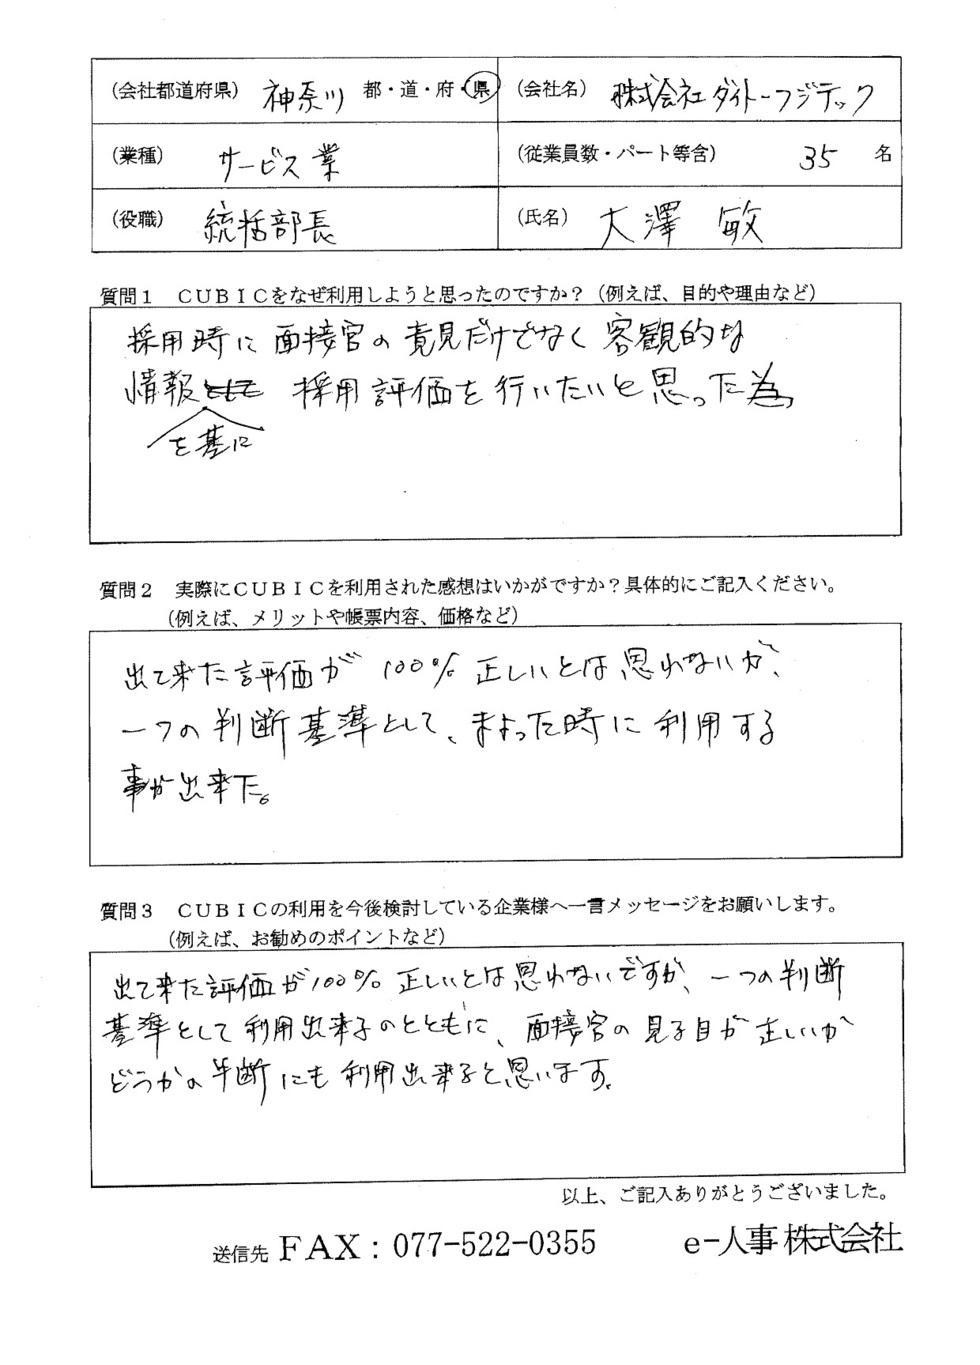 （会社都道府県） 神奈川 都・道・府・県 （会社名） 株式会社ダイトーフジテック
（業種） サービス業 （従業員数・パート等含） 35 名
（役職） 統括部長 （氏名） 大澤 敏
質問１ ＣＵＢＩＣをなぜ利用しようと思ったのですか？（例えば、目的や理由など）
採用時に面接官の意見だけでなく客観的な
情報を基に採用評価を行いたいと思った為、
質問２ 実際にＣＵＢＩＣを利用された感想はいかがですか？具体的にご記入ください。
（例えば、メリットや帳票内容、価格など）
出て来た評価が100%正しいとは思わないが、
一つの判断基準として、まよった時に利用する
事が出来た。
質問３ ＣＵＢＩＣの利用を今後検討している企業様へ一言メッセージをお願いします。
（例えば、お勧めのポイントなど）
出て来た評価が100%正しいとは思わないですが、一つの判断
基準として利用出来るのとともに、面接官の見る目が正しいか
どうかの判断にも利用出来ると思います。
以上、ご記入ありがとうございました。
送信先 ＦＡＸ：077-522-0355 e-人事株式会社